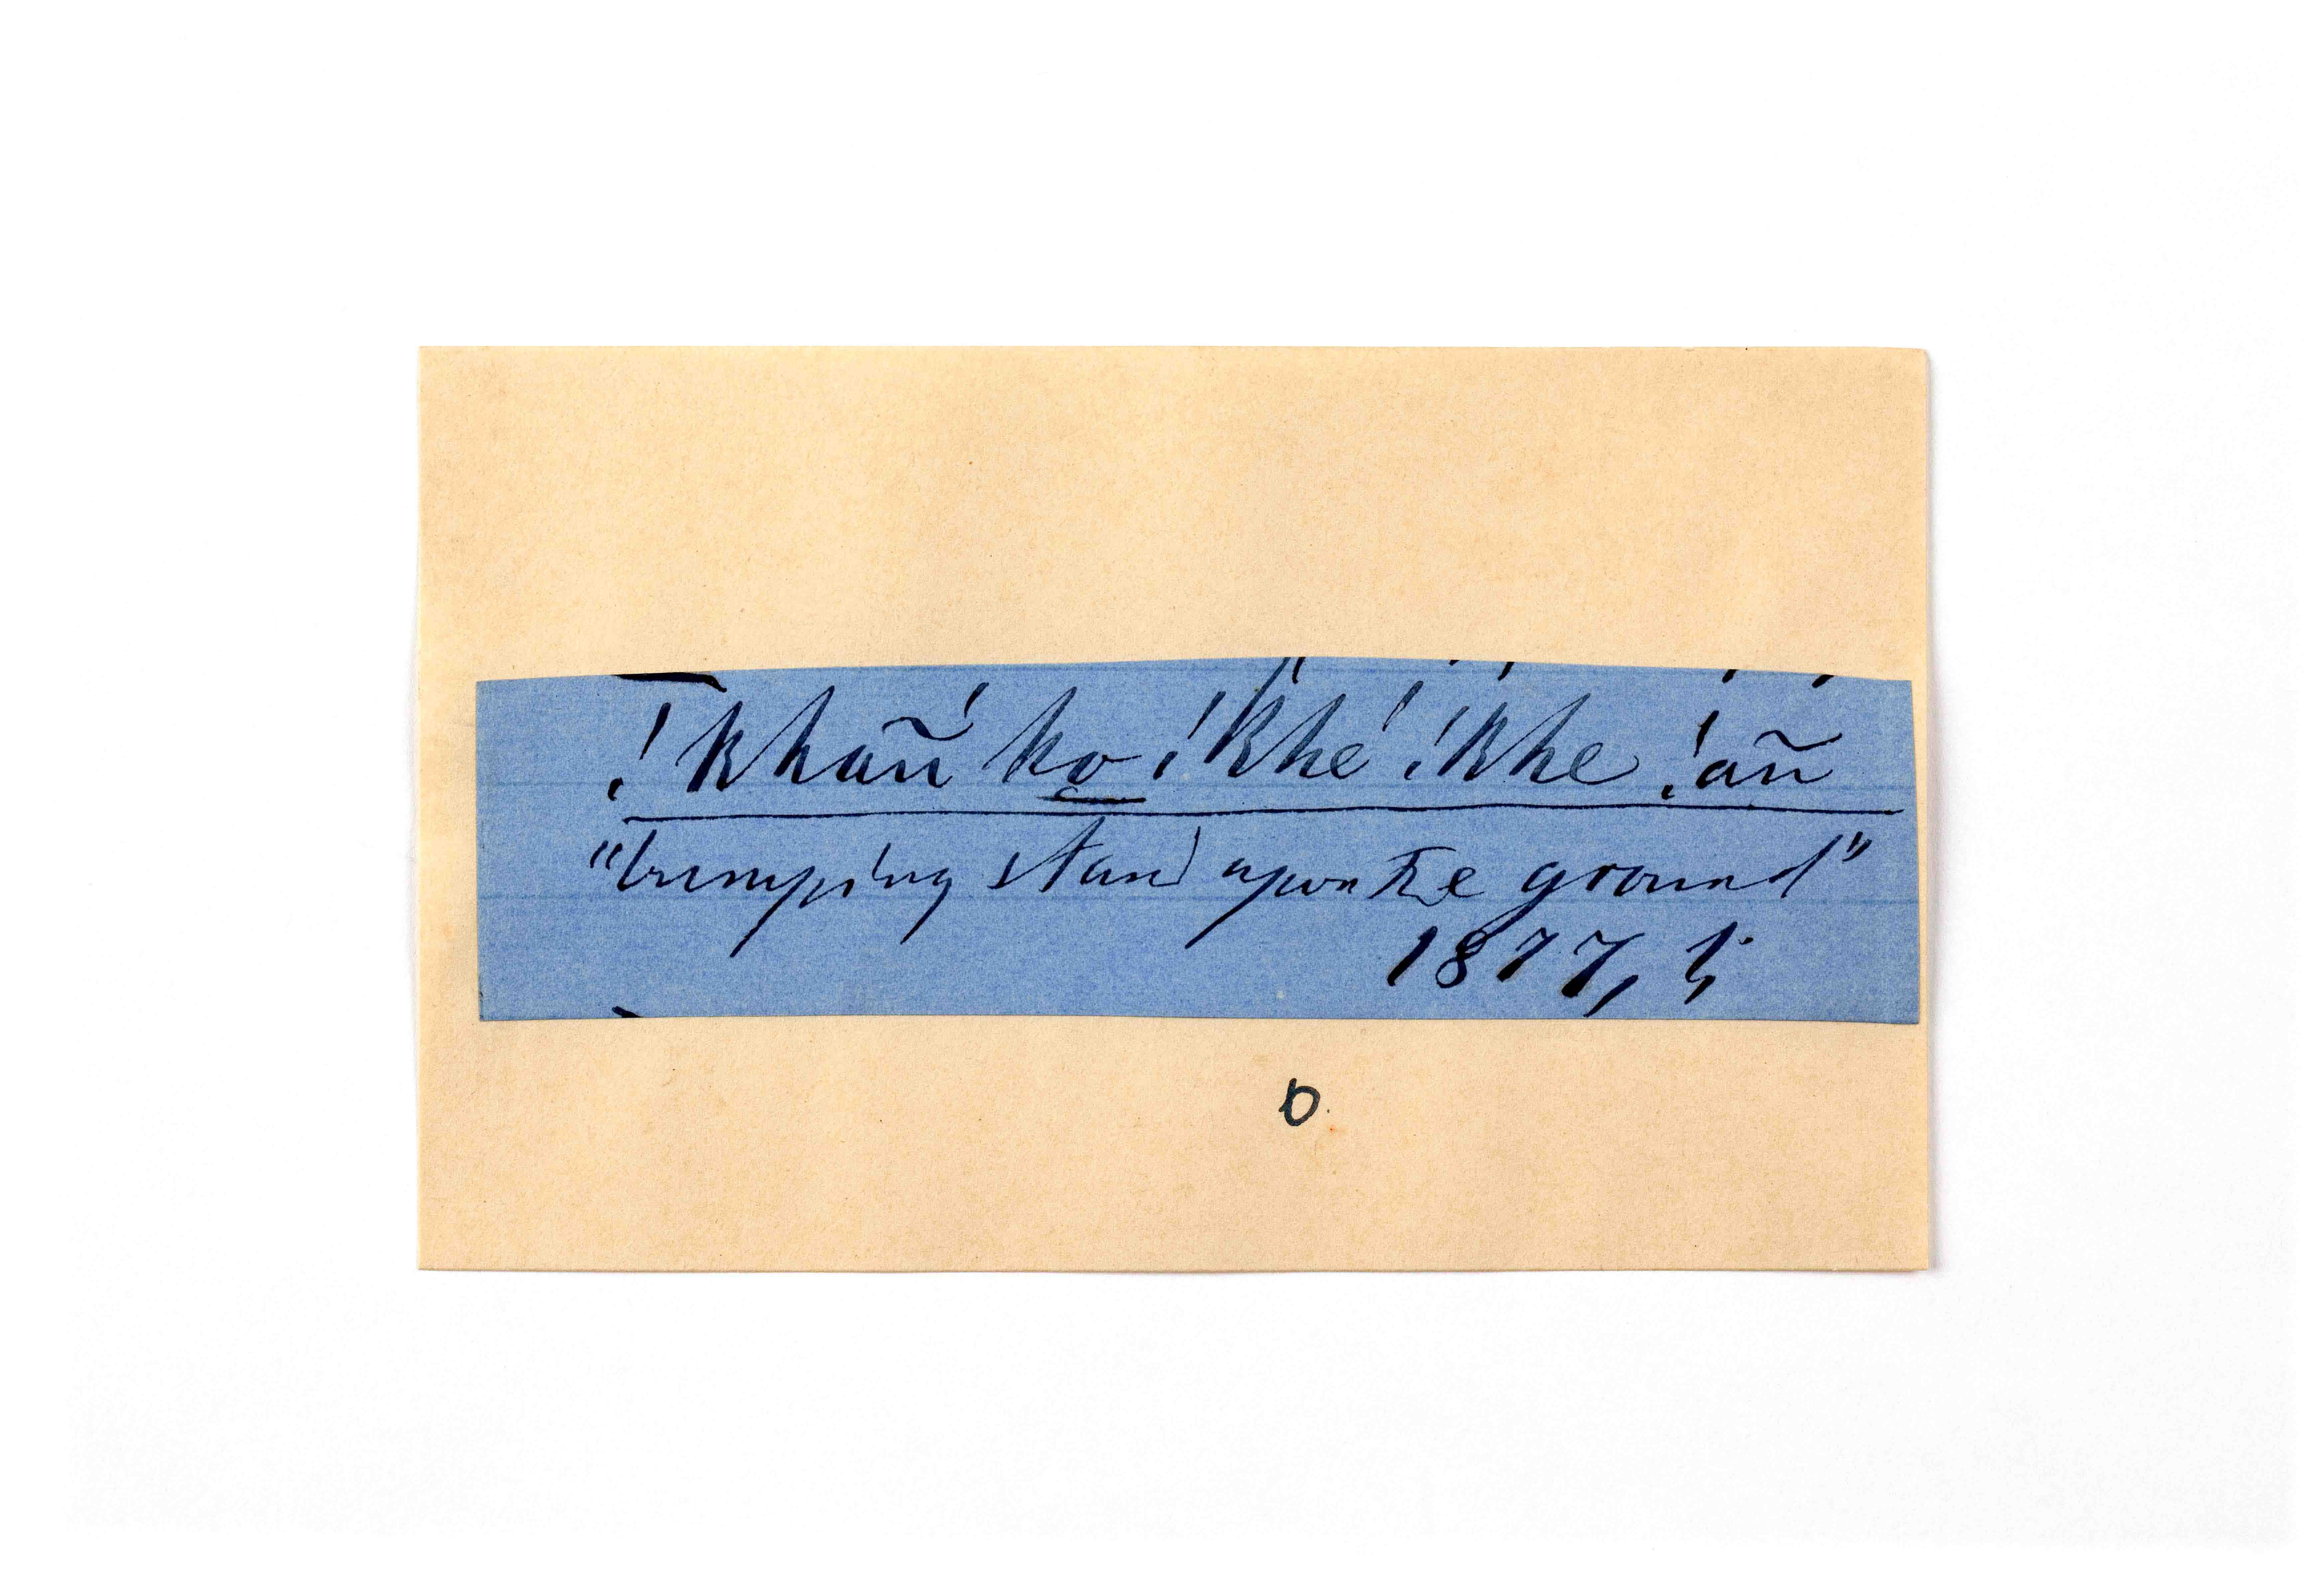 !khañ ko !khe !khe !añ
"tramping stand upon the ground"
1877,
b.